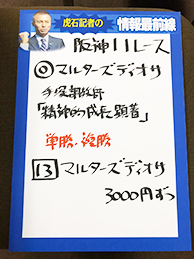 虎石記者の
情報最前線
阪神11レース
◎マルターズディオサ
手塚調教師
「精神的成長顕著」
単勝・複勝
13 マルターズディオサ
3000円ずつ